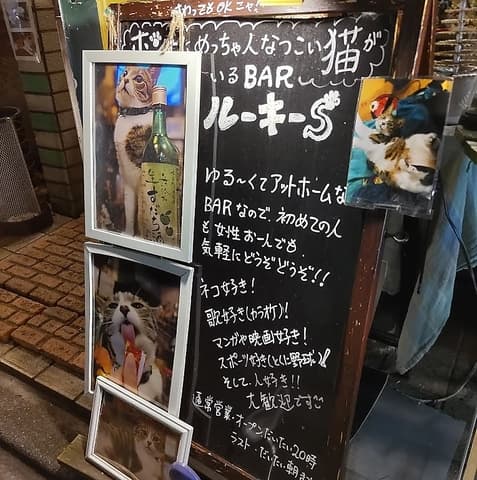 さわってもOKニャ!
めっちゃ人なつこい猫が
いるBAR
ルーキーS
ゆる〜くてアットホームな
BARなので、初めての人
も女性お一人でも
気軽にどうぞどうぞ!!
ネコ好き!
歌好き(カラオケ)!
マンガや映画好き!
スポーツ好き(とくに野球)
そして、人好き!!
大歓迎ですご
通常営業・オープンだいたい20時
ラスト・だいたい朝